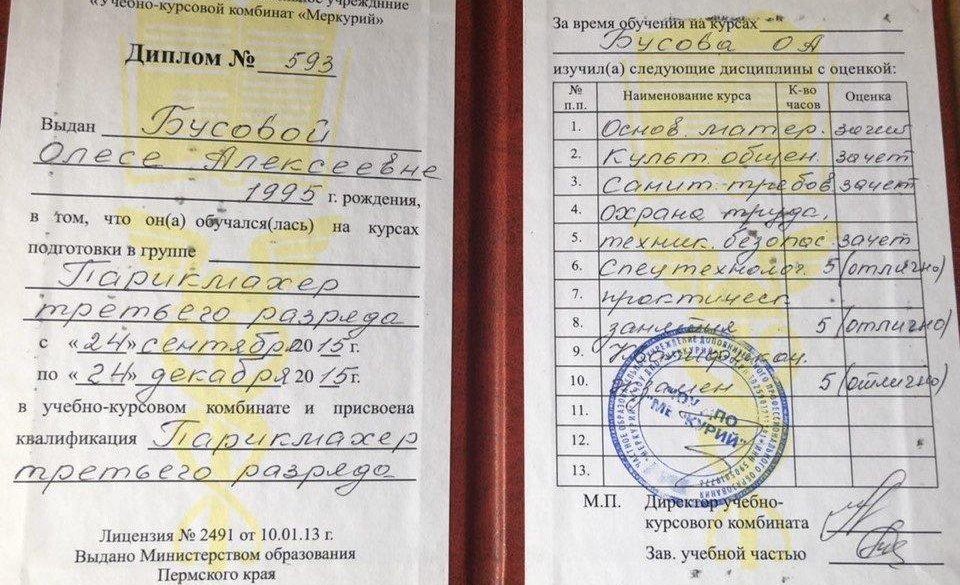 учреждение
«Учебно-курсовой комбинат «Меркурий»
Диплом № 593
Выдан Бусовой
Олесе Алексеевне
1995 г. рождения,
в том, что он(а) обучался(лась) на курсах
подготовки в группе
Парикмахер
третьего разряда
с «24» сентября 2015 г.
по «24» декабря 2015 г.
в учебно-курсовом комбинате и присвоена
квалификация Парикмахер
третьего разряда
Лицензия № 2491 от 10.01.13 г.
Выдано Министерством образования
Пермского края
За время обучения на курсах
Бусова ОА
изучил(а) следующие дисциплины с оценкой:
№ п.п. Наименование курса К-во часов Оценка
1. Основ. матер. зачет
2. Культ. общен. зачет
3. Санит. требов зачет
4. охрана труда,
5. техник. безопас. зачет
6. Спецтехнолог. 5 (отлично)
7. практическ
8. занятия 5 (отлично)
9. Квалификацион.
10. экзамен 5 (отлично)
11.
12.
13.
ЧОУ ДПО
"МЕРКУРИЙ"
М.П. Директор учебно-
курсового комбината
Зав. учебной частью